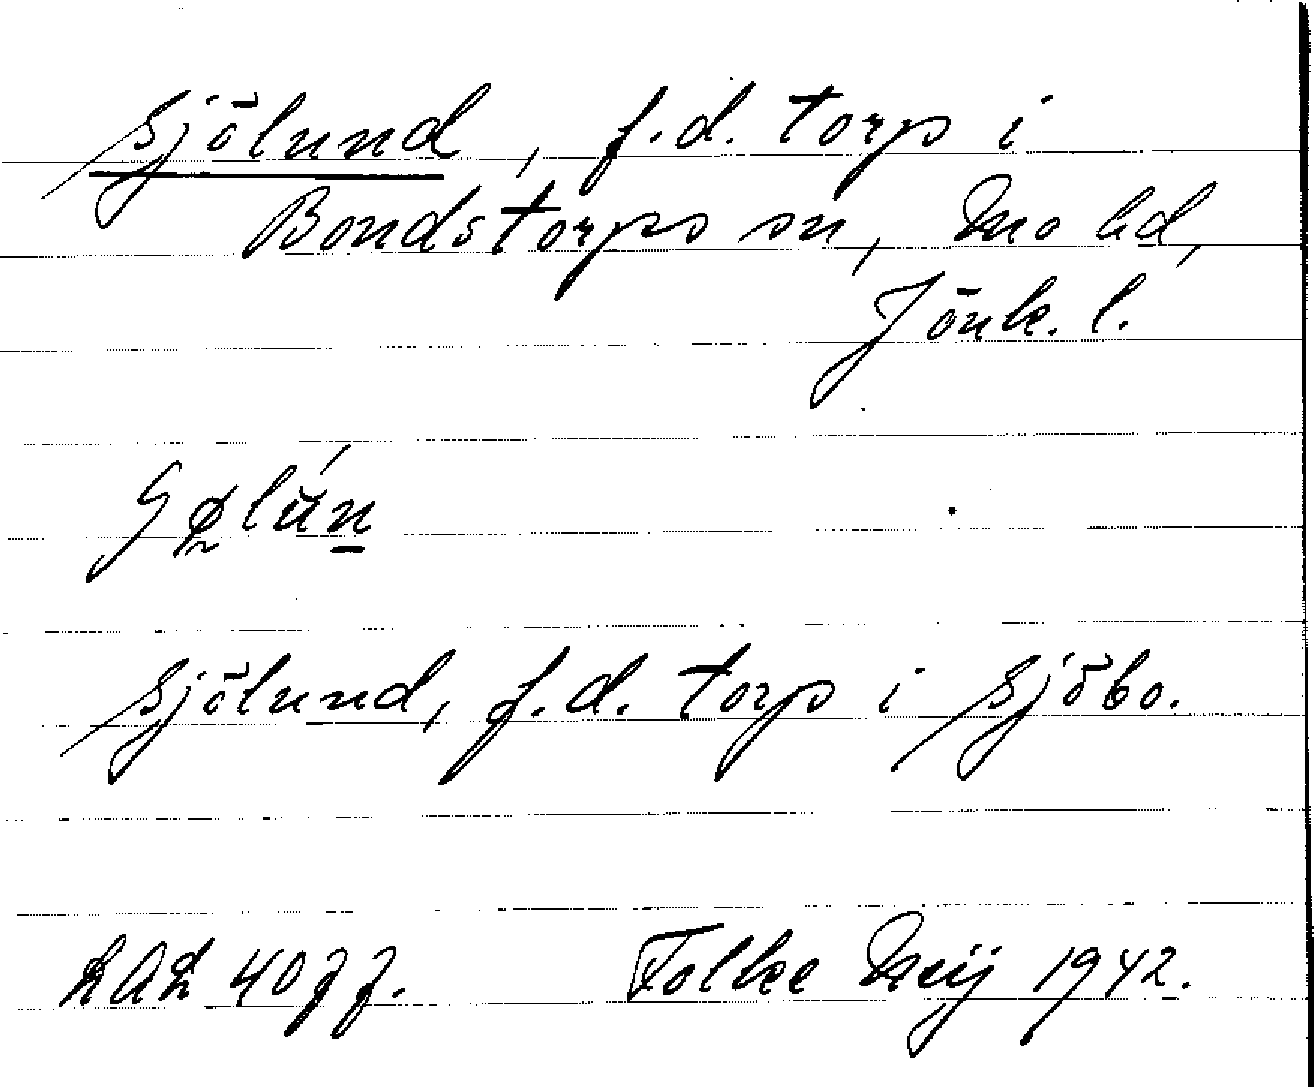 Sjölund, f.d. torp i
Bondstorps sn, Mo hd,
Jönk. l.
Sjölund, f.d. torp i Sjöbo.
Folke Meij 1942.